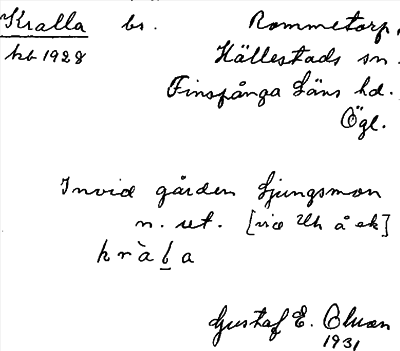 Kralla bs. Rommetorp,
kb 1928 Hällestads sn.
Finspånga Läns hd.
Ögl.
Invid gården Ljungsmon
n. ut. [vid Uh å ek]
kràḷa
Gustaf E. Olsson
1931